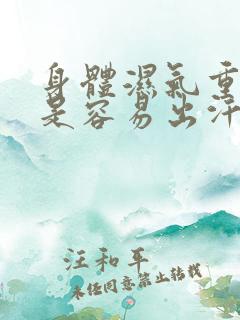 身體濕氣重
是容易出汗
汪和平
未经同意禁止转载